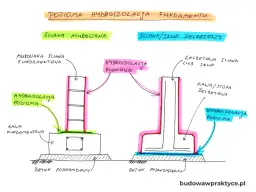 POZIOMA HYDROIZOLACJA FUNDAMENTU
ŚCIANA MUROWANA
ŚCIANA/SŁUP ŻELBETOWY
MUROWANA ŚCIANA
FUNDAMENTOWA
HYDROIZOLACJA
PIONOWA
ŻELBETOWA ŚCIANA
LUB SŁUP
HYDROIZOLACJA
POZIOMA
ŁAWA/STOPA
ŻELBETOWA
ŁAWA
FUNDAMENTOWA
HYDROIZOLACJA
POZIOMA
BETON PODKŁADOWY
BETON PODKŁADOWY
budowawpraktyce.pl